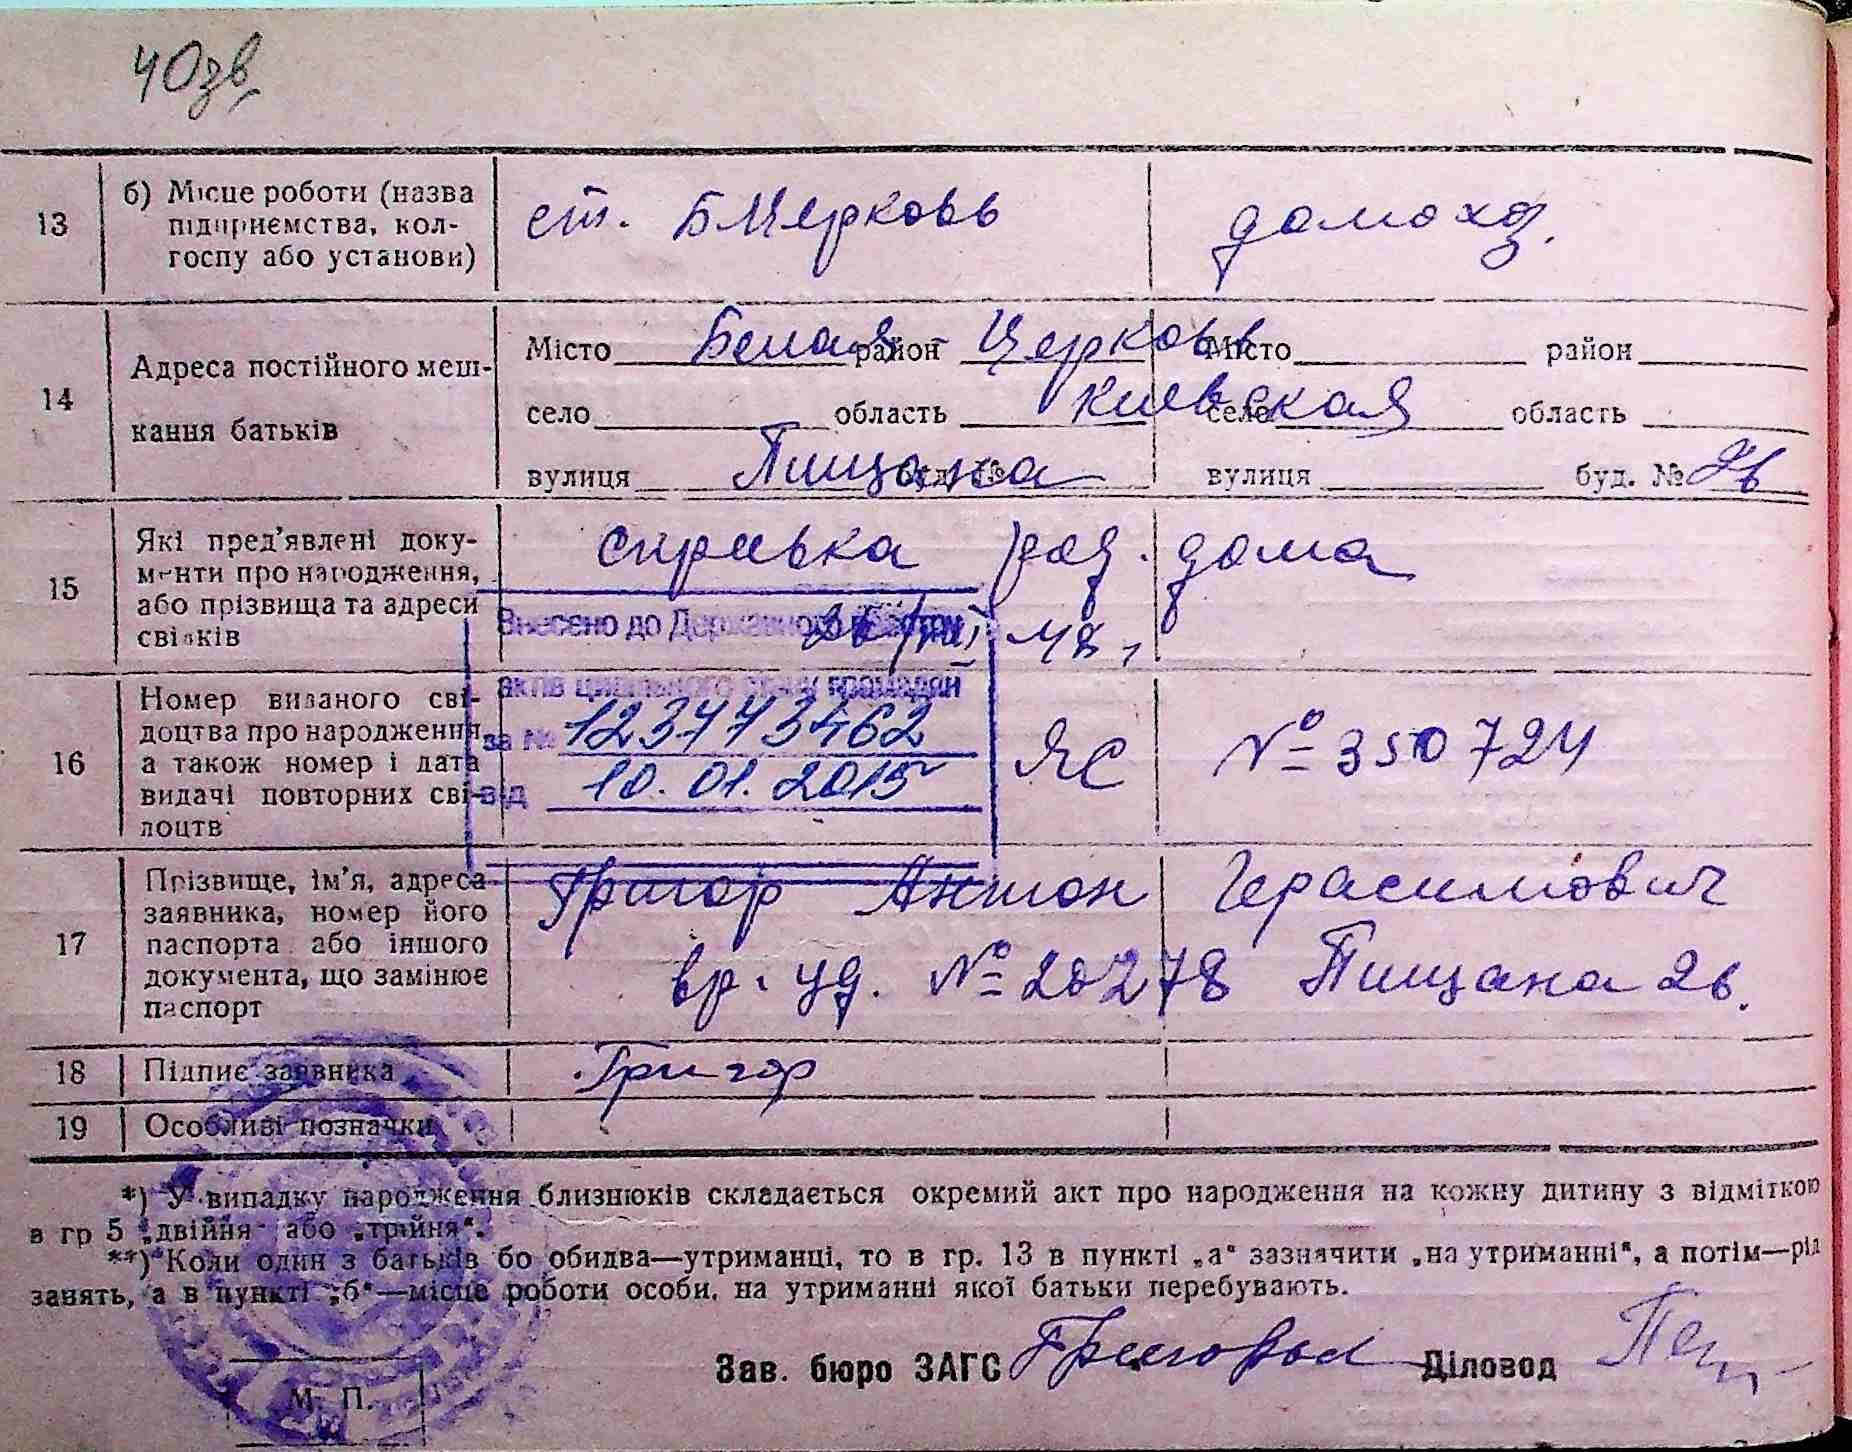 13
б) Місце роботи (назва
підприємства, кол-
госпу або установи)
ст. БЦерковь
домохоз.
14
Адреса постійного меш-
кання батьків
Місто Белая район Церковь Місто район
село область Киевская село область
вулиця Пищана буд. № вулиця буд. № 2в
15
Які пред'явлені доку-
менти про народження,
або прізвища та адреси
свідків
справка род. дома
48,
Внесено до Державного реєстру
актів цивільного стану громадян
за № 1237743462
від 10. 01. 2015
16
Номер виданого сві-
доцтва про народження
а також номер і дата
видачі повторних сві-
доцтв
ЯС № 350724
17
Прізвище, ім'я, адреса
заявника, номер його
паспорта або іншого
документа, що замінює
паспорт
Григор Антон Герасимович
вр. уд. № 20278 Пищана 2в.
18
Підпис заявника
Григор
19
Особливі позначки
*) У випадку народження близнюків складається окремий акт про народження на кожну дитину з відміткою
в гр 5 „двійня" або „трійня".
**) Коли один з батьків бо обидва—утриманці, то в гр. 13 в пункті „а" зазначити „на утриманні", а потім—рід
занять, а в пункті „б"—місце роботи особи, на утриманні якої батьки перебувають.
Зав. бюро ЗАГС Діловод
М. П.